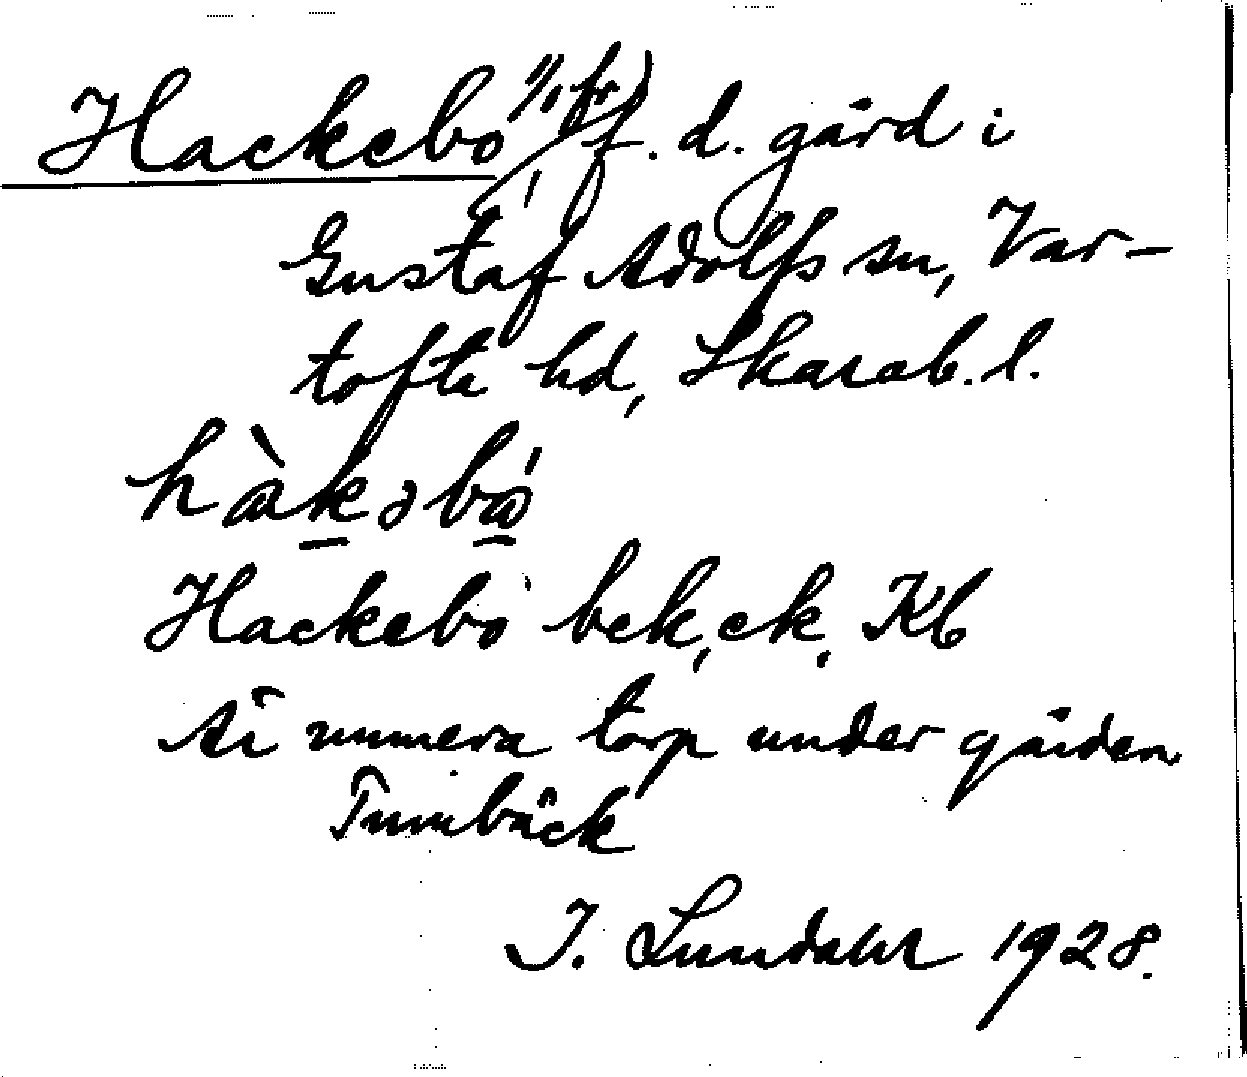 Hackebo 1/1 fr) f. d. gård i
Gustaf Adolfs sn, Var-
tofta hd, Skarab. l.
hàkəbó
Hackebo bek, ek. Kb
Är numera torp under gården
Tumbäck
I. Lundahl 1928.